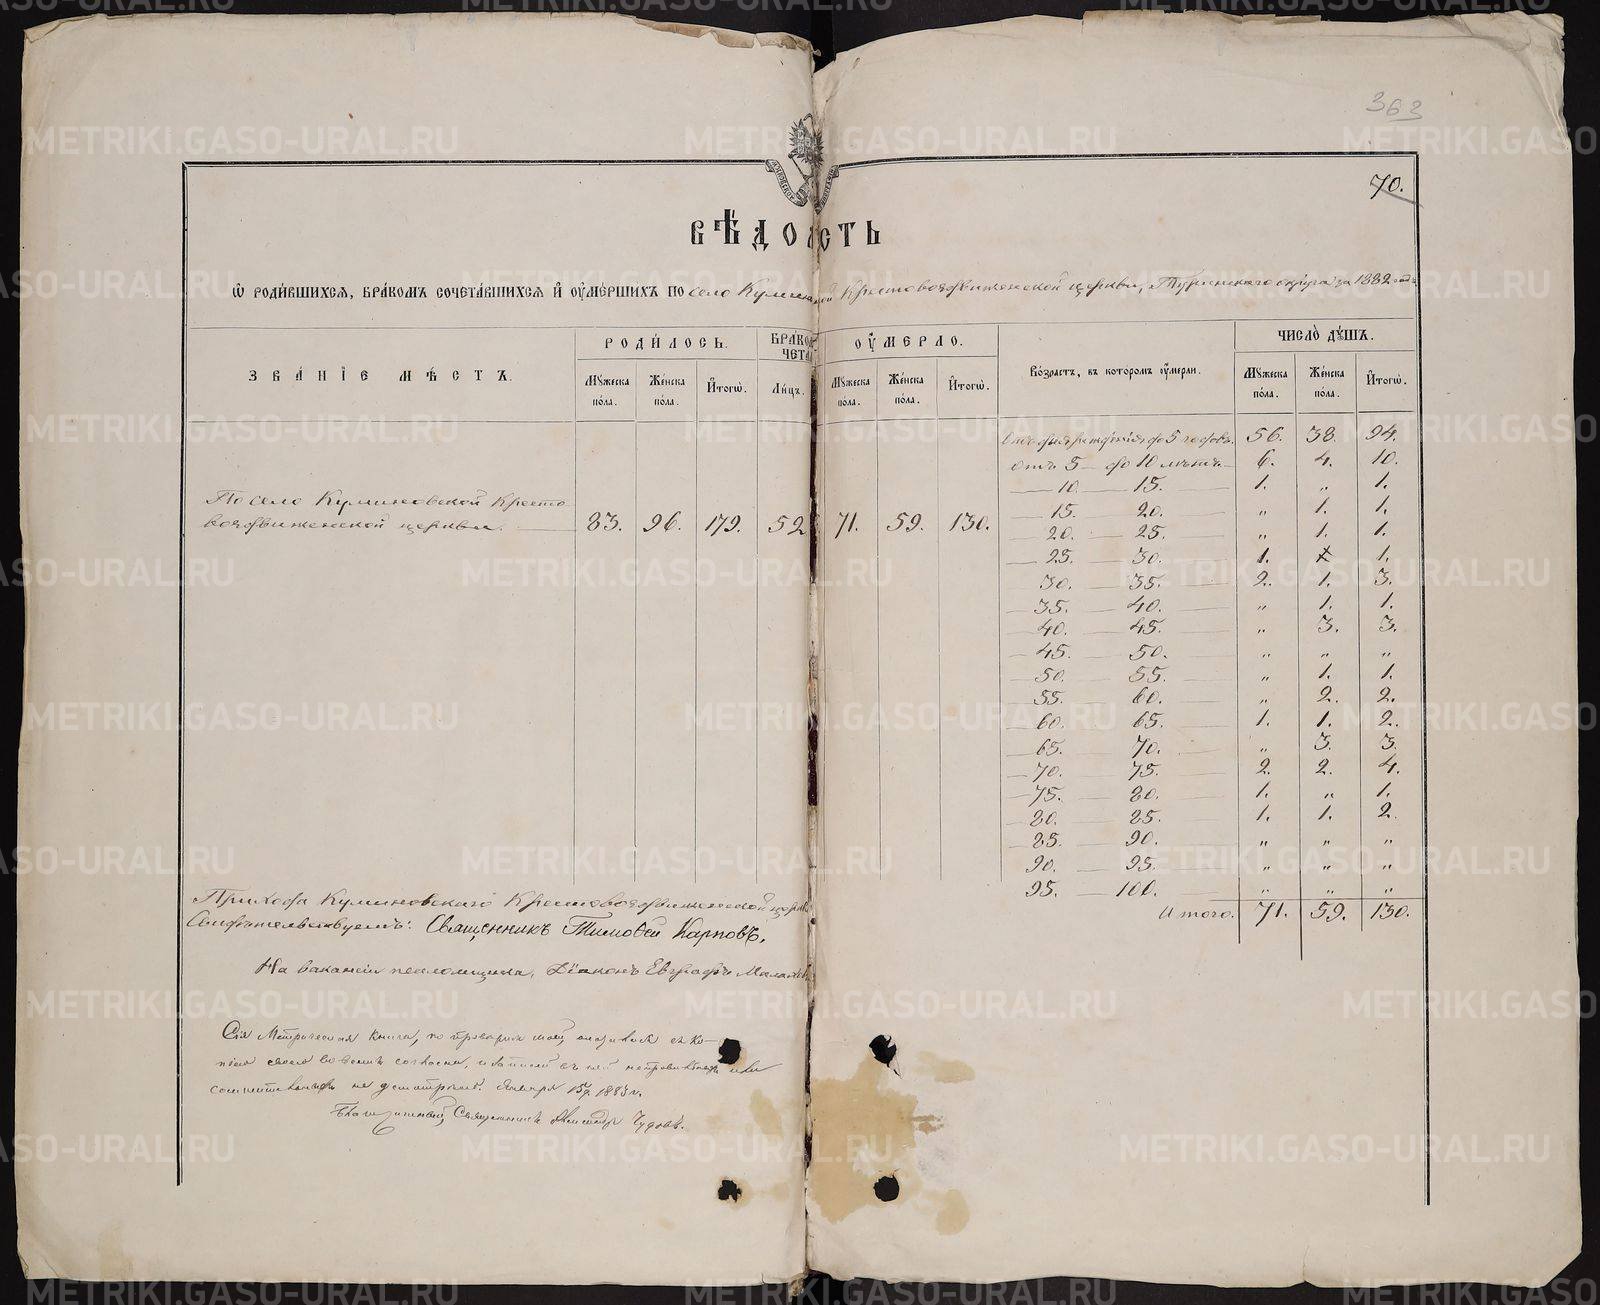 363
70.
ВѢДОМОСТЬ
Ѡ РОДИ́ВШИХСЯ, БРА́КОМЪ СОЧЕТА́ВШИХСЯ И҆ ОУ҆МЕ́РШИХЪ ПО село Куминовской Крестовоздвиженской церкви, Туринскаго округа за 1882 годъ
ЗВА́НІЕ МѢ́СТЪ.
РОДИ́ЛОСЬ.
Мꙋ́жеска по́ла.
Же́нска по́ла.
И҆тогѡ̀.
Ли́цъ.
ОУ҆́МЕРЛО.
Мꙋ́жеска по́ла.
Же́нска по́ла.
И҆тогѡ̀.
Во́зрастъ, въ которомъ оу҆́мерли.
ЧИСЛО̀ ДꙊ́ШЪ.
Мꙋ́жеска по́ла.
Же́нска по́ла.
И҆тогѡ̀.
По село Куминовской Кресто
воздвиженской церкви. 83. 96. 179. 52 71. 59. 130.
до 5 годовъ. 56. 38. 94.
отъ 5 — до 10 лѣтъ — 6. 4. 10.
— 10. — 15. — 1. „ 1.
— 15. — 20. — „ 1. 1.
— 20. — 25. — „ 1. 1.
— 25. — 30. — 1. 1.
— 30. — 35. — 2. 1. 3.
— 35. — 40. — „ 1. 1.
— 40. — 45. — „ 3. 3.
— 45. — 50. — „ „ „
— 50. — 55. — „ 1. 1.
— 55. — 60. — „ 2. 2.
— 60. — 65. — 1. 1. 2.
— 65. — 70. — „ 3. 3.
— 70. — 75. — 2. 2. 4.
— 75. — 80. — 1. „ 1.
— 80. — 85. — 1. 1. 2.
— 85. — 90. — „ „ „
— 90. — 95. — „ „ „
95. — 100. — „ „ „
Итого. 71. 59. 130.
Прихода Куминовскаго Крестовоздвиженской церкви
Свидѣтельствуемъ: Священникъ Тимоѳей Карповъ.
На вакансіи псаломщика, Діаконъ Евграфъ
Сія Метрическая книга, по провѣркѣ моей, оказалась съ ко-
піею своею во всемъ согласна, и въ ней неправильной или
не усмотрено. Января 15 д. 1883 г.
Благочинный, Священникъ Александръ Чудовъ.
METRIKI.GASO-URAL.RU